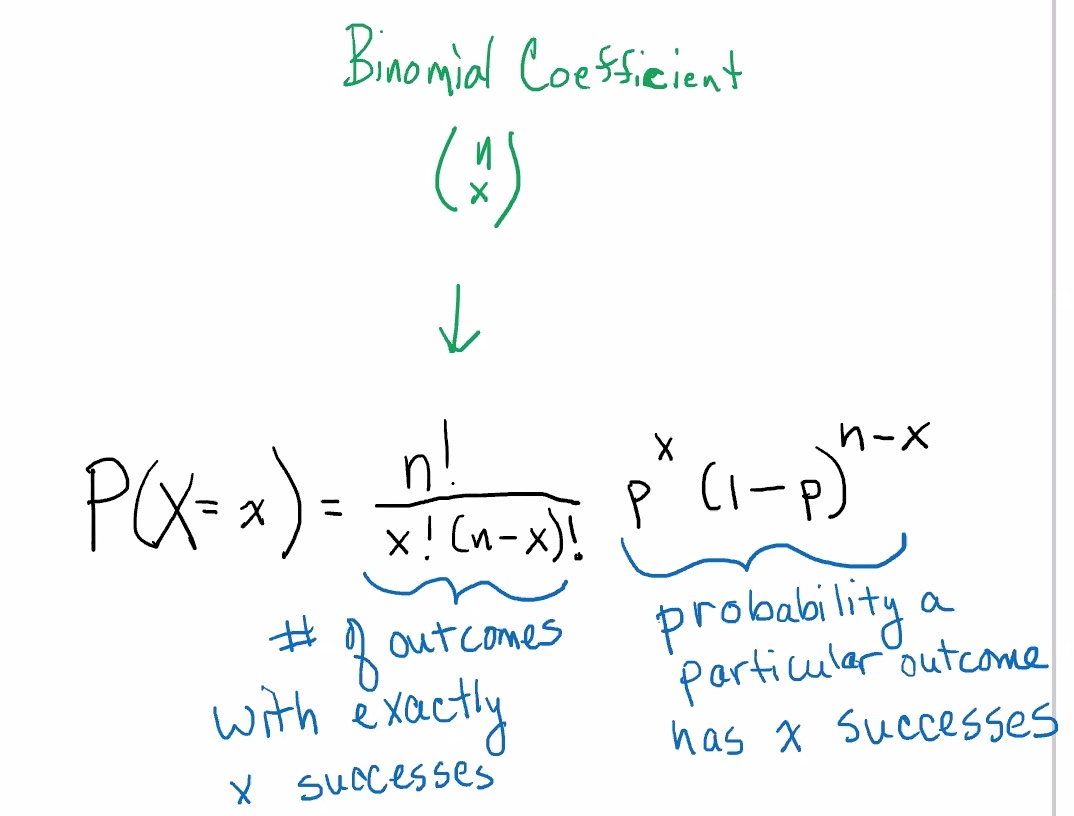 Binomial Coefficient
(n x)
↓
P(X = x) = n! / x! (n-x)! p^x (1-p)^n-x
# of outcomes
with exactly
x successes
probability a
particular outcome
has x successes